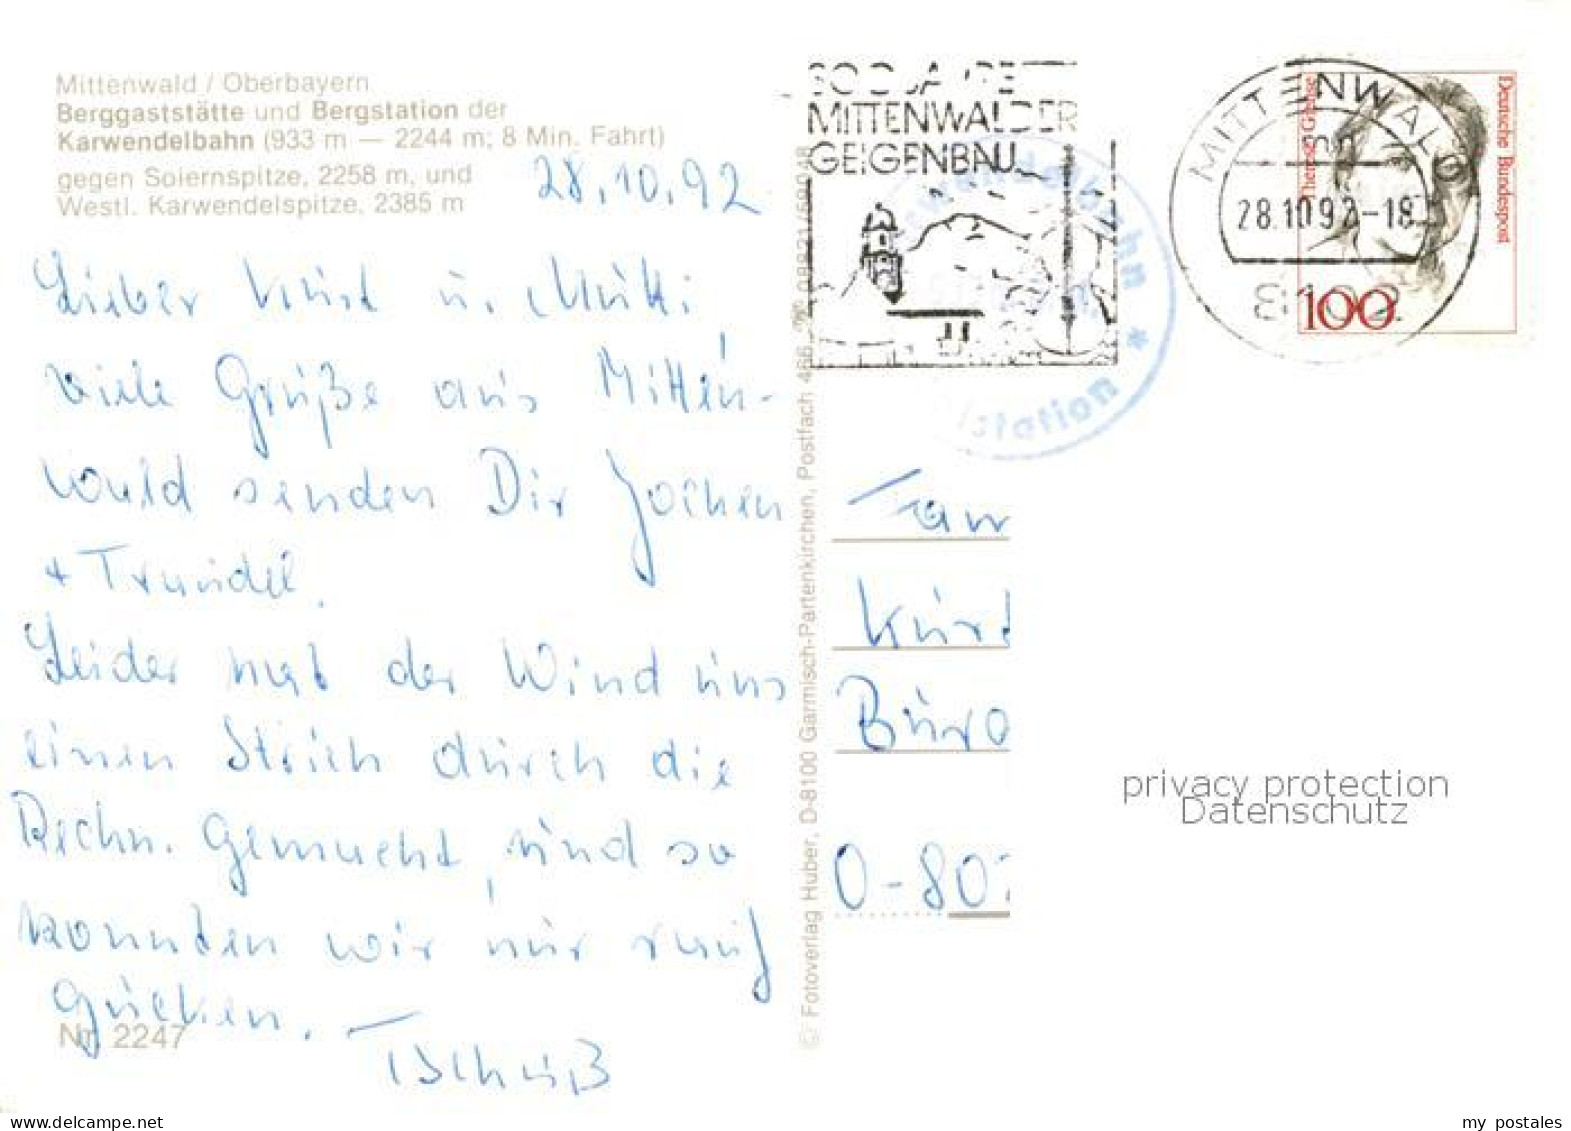 Mittenwald / Oberbayern
Berggaststätte und Bergstation der
Karwendelbahn (933 m — 2244 m; 8 Min. Fahrt)
gegen Soiernspitze, 2258 m, und
Westl. Karwendelspitze, 2385 m
28.10.92
Lieber Kurt u. Mutti
viele Grüße aus Mitten-
wald senden Dir Jochen
+ Traudel.
Leider hat der Wind uns
einen Strich durch die
Rechn. gemacht, und so
konnten wir nur rauf
gucken.
Tschüß
Nr. 2247
© Fotoverlag Huber, D-8100 Garmisch-Partenkirchen, Postfach 466, 08821/69048
300 JAHRE
MITTENWALDER
GEIGENBAU
MITTENWALD
mn
28.10.92-18
8102
Deutsche Bundespost
Therese Giehse
100
Karwendelbahn *
station
Fam
Kurt
Büro
O-80
privacy protection
Datenschutz
my postales